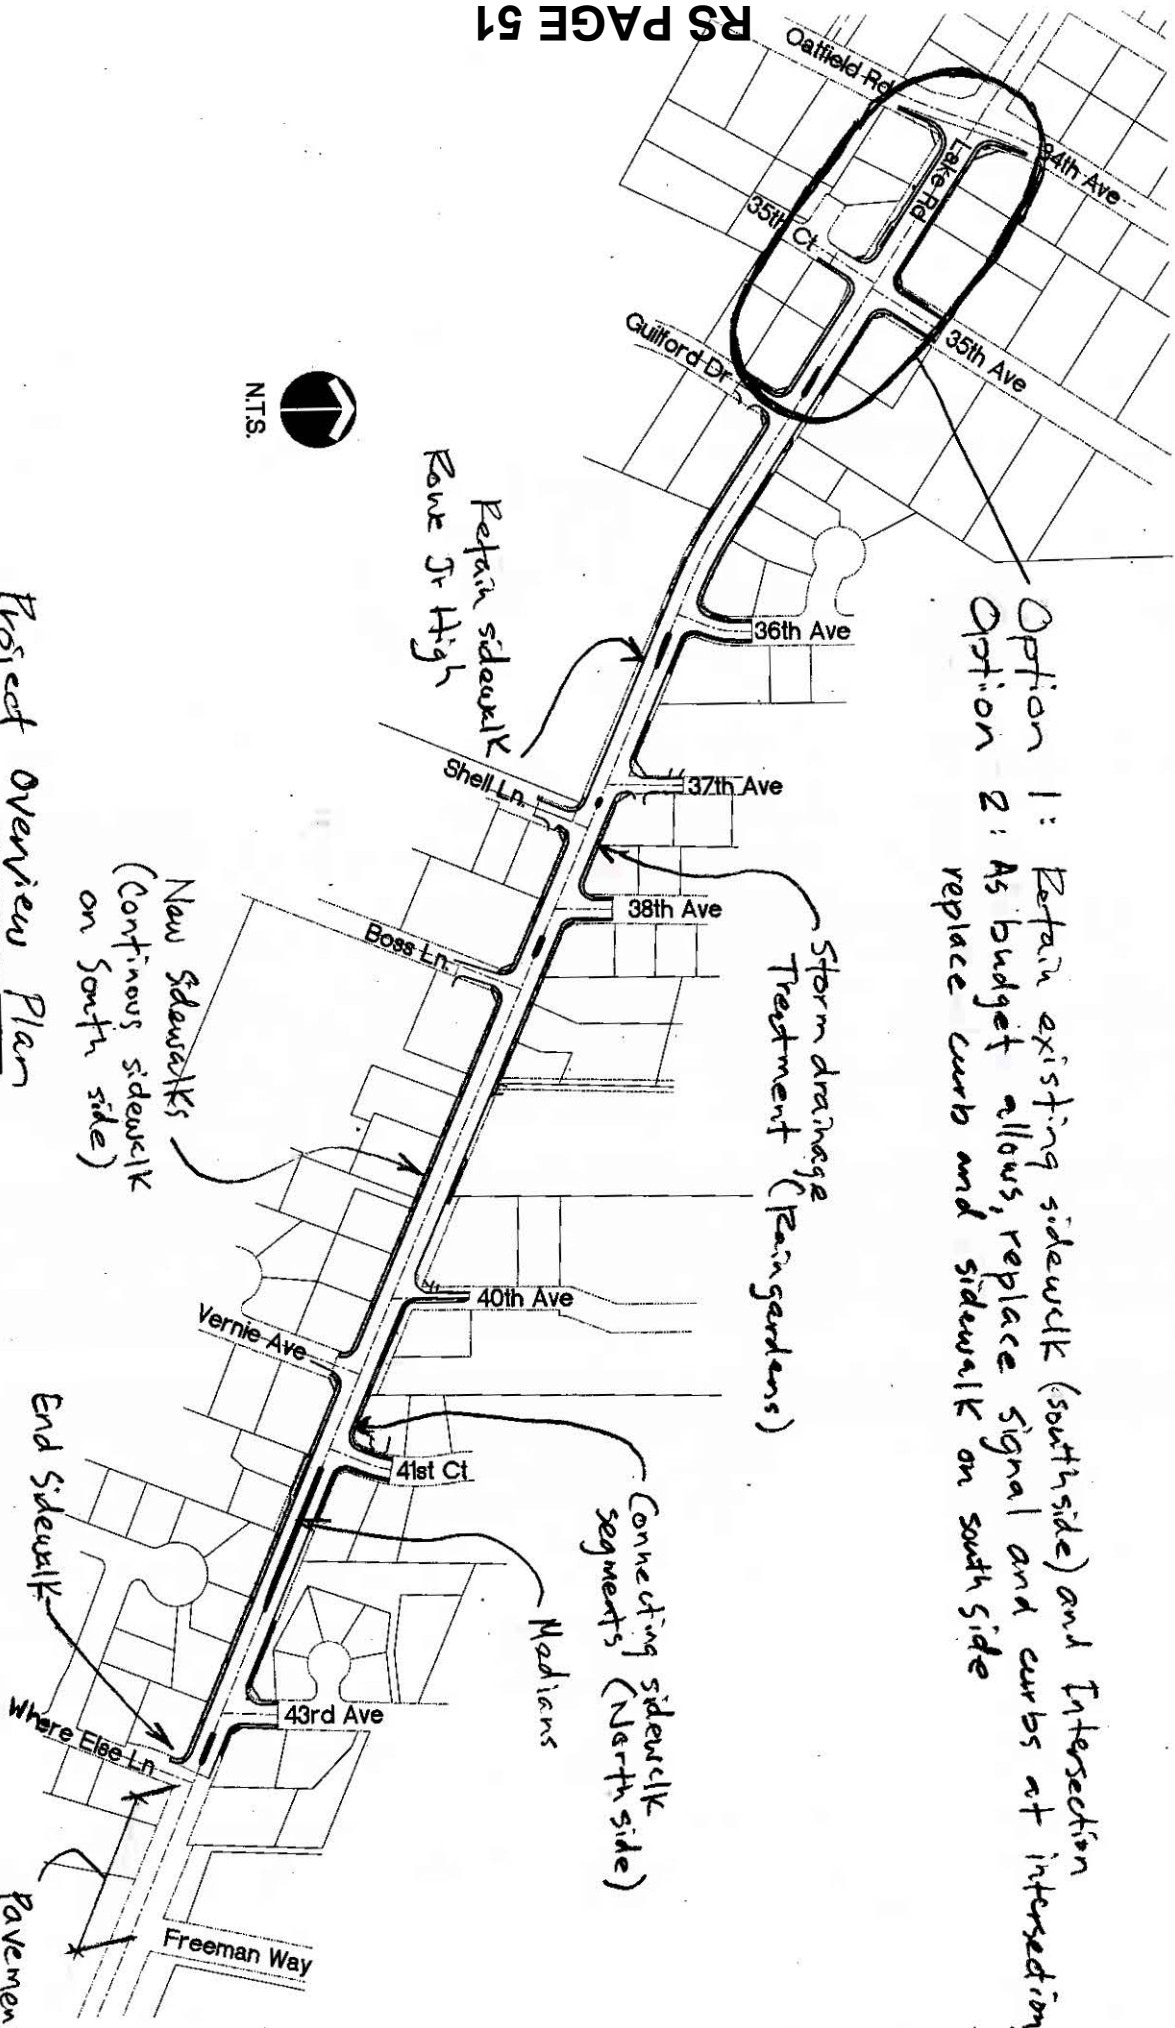 RS PAGE 51
Oatfield Rd
34th Ave
Lake Rd
35th Ct
35th Ave
Guilford Dr
N.T.S.
Option 1: Retain existing sidewalk (southside) and Intersection
Option 2: As budget allows, replace signal and curbs at intersection
replace curb and sidewalk on south side
36th Ave
Retain sidewalk
Rowe Jr High
Shell Ln.
37th Ave
38th Ave
Boss Ln.
Storm drainage
Treatment (Raingardens)
New Sidewalks
(Continous sidewalk
on South side)
40th Ave
Vernie Ave
41st Ct
Connecting sidewalk
segments (North side)
Medians
End Sidewalk
43rd Ave
Where Else Ln
Freeman Way
Pavemen
Project Overview Plan